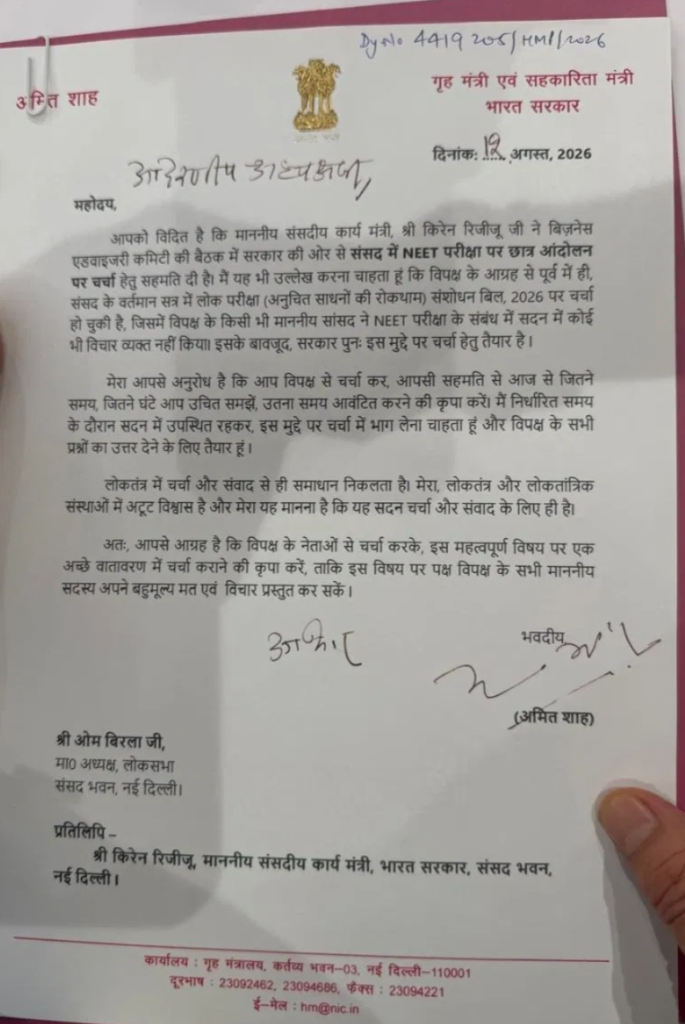 Dy No 4419205/HMP/2026
अमित शाह
गृह मंत्री एवं सहकारिता मंत्री
भारत सरकार
दिनांक: 12 अगस्त, 2026
आदरणीय अध्यक्षजी,
महोदय,
आपको विदित है कि माननीय संसदीय कार्य मंत्री, श्री किरेन रिजीजू जी ने बिज़नेस
एडवाइजरी कमिटी की बैठक में सरकार की ओर से संसद में NEET परीक्षा पर छात्र आंदोलन
पर चर्चा हेतु सहमति दी है। मैं यह भी उल्लेख करना चाहता हूं कि विपक्ष के आग्रह से पूर्व में ही,
संसद के वर्तमान सत्र में लोक परीक्षा (अनुचित साधनों की रोकथाम) संशोधन बिल, 2026 पर चर्चा
हो चुकी है, जिसमें विपक्ष के किसी भी माननीय सांसद ने NEET परीक्षा के संबंध में सदन में कोई
भी विचार व्यक्त नहीं किया। इसके बावजूद, सरकार पुनः इस मुद्दे पर चर्चा हेतु तैयार है ।
मेरा आपसे अनुरोध है कि आप विपक्ष से चर्चा कर, आपसी सहमति से आज से जितने
समय, जितने घंटे आप उचित समझें, उतना समय आवंटित करने की कृपा करें। मैं निर्धारित समय
के दौरान सदन में उपस्थित रहकर, इस मुद्दे पर चर्चा में भाग लेना चाहता हूं और विपक्ष के सभी
प्रश्नों का उत्तर देने के लिए तैयार हूं ।
लोकतंत्र में चर्चा और संवाद से ही समाधान निकलता है। मेरा, लोकतंत्र और लोकतांत्रिक
संस्थाओं में अटूट विश्वास है और मेरा यह मानना है कि यह सदन चर्चा और संवाद के लिए ही है।
अतः, आपसे आग्रह है कि विपक्ष के नेताओं से चर्चा करके, इस महत्वपूर्ण विषय पर एक
अच्छे वातावरण में चर्चा कराने की कृपा करें, ताकि इस विषय पर पक्ष विपक्ष के सभी माननीय
सदस्य अपने बहुमूल्य मत एवं विचार प्रस्तुत कर सकें ।
भवदीय
(अमित शाह)
श्री ओम बिरला जी,
मा0 अध्यक्ष, लोकसभा
संसद भवन, नई दिल्ली।
प्रतिलिपि –
श्री किरेन रिजीजू, माननीय संसदीय कार्य मंत्री, भारत सरकार, संसद भवन,
नई दिल्ली ।
कार्यालय : गृह मंत्रालय, कर्तव्य भवन–03, नई दिल्ली–110001
दूरभाष : 23092462, 23094686, फ़ैक्स : 23094221
ई–मेल : hm@nic.in